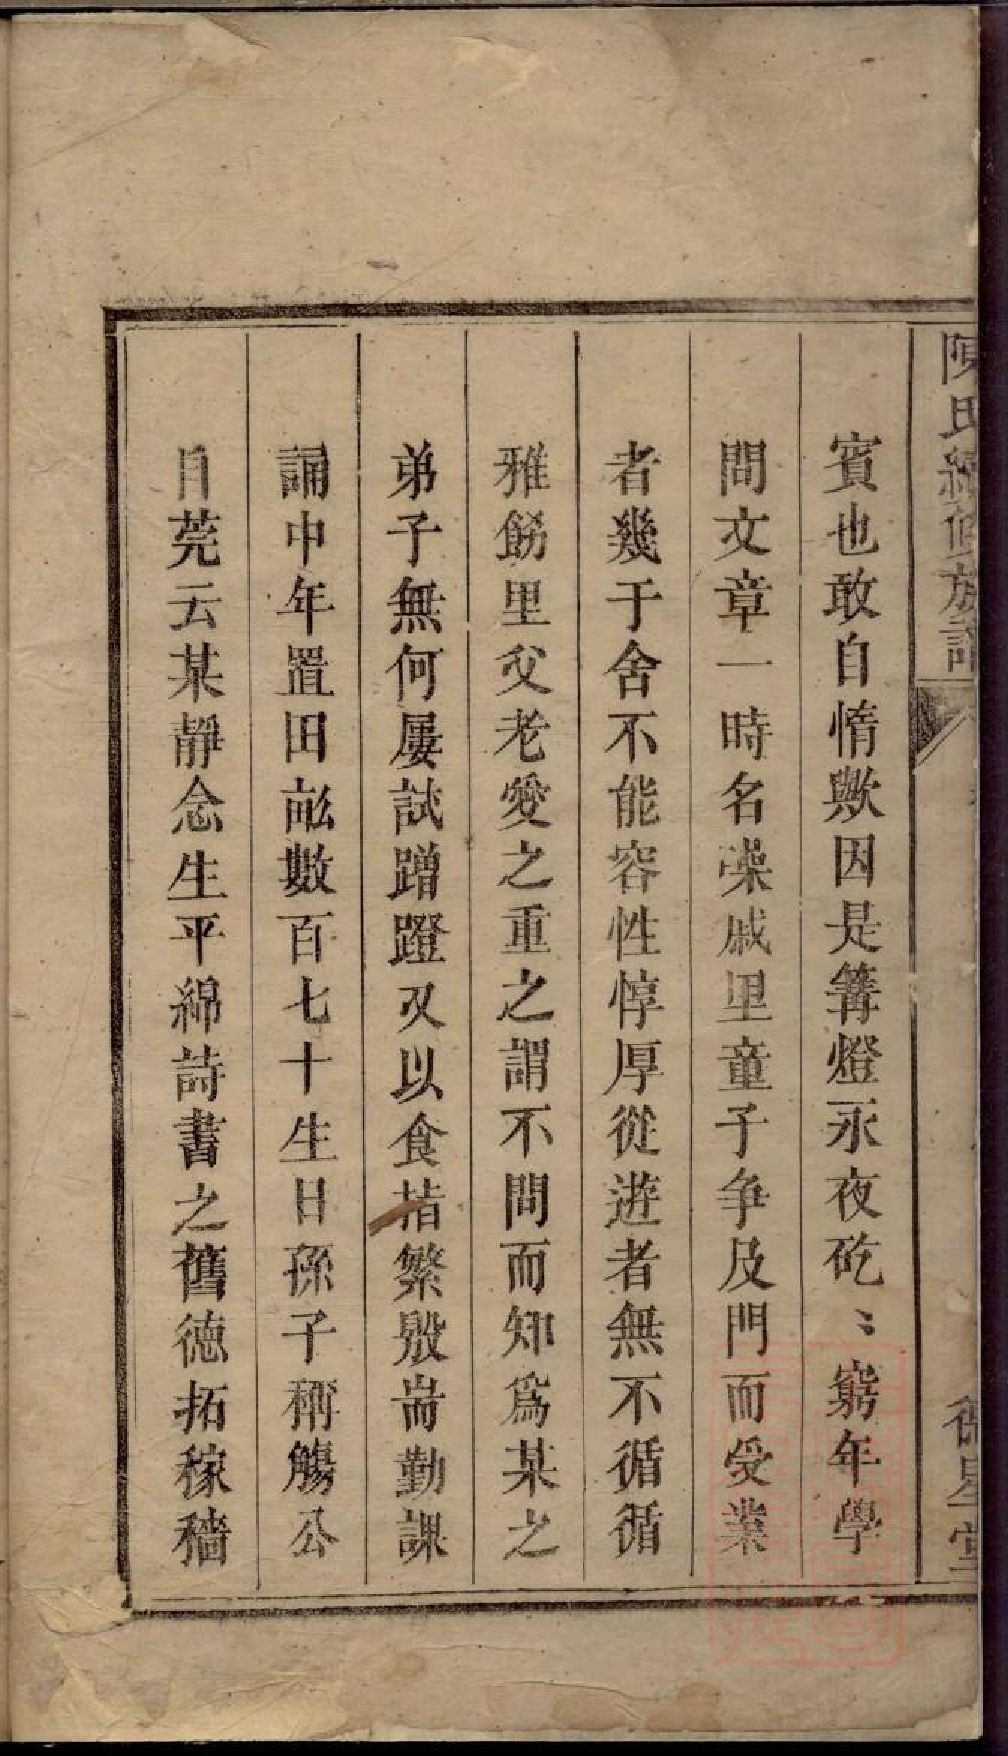 陳氏續修族譜
德星堂
賓也敢自惰歟因是篝燈永夜矻〻窮年學
問文章一時名噪戚里童子争及門而受業
者幾于舍不能容性惇厚從遊者無不循循
雅飭里父老愛之重之謂不問而知為某之
弟子無何屢試蹭蹬又以食指繁殷耑勤課
誦中年置田畝數百七十生日孫子稱觴公
自莞云某靜念生平綿詩書之舊德拓稼穡